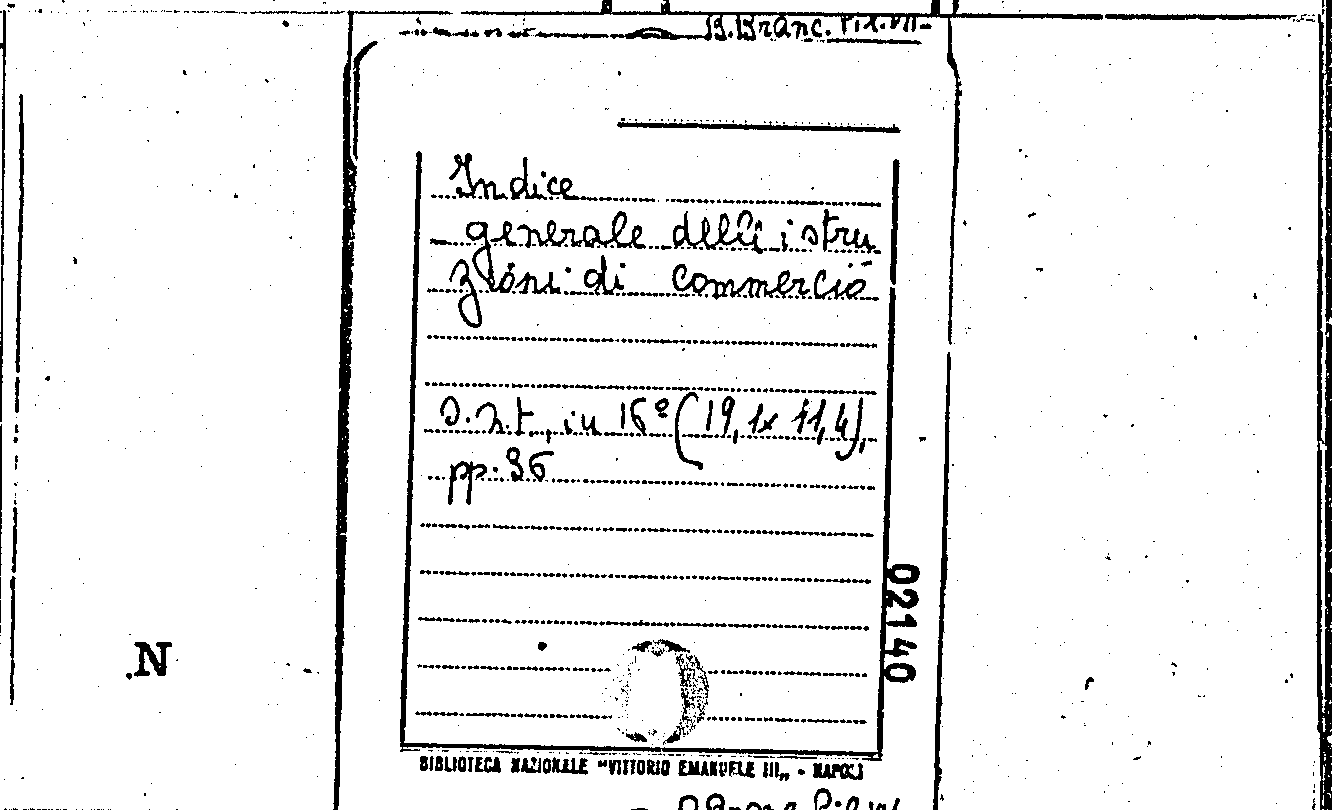 B.Branc.
Indice
generale delli istru
zioni di commercio
s.n.t., in 16º (19,1x 11,4),
pp. 36
02140
N.
BIBLIOTECA NAZIONALE "VITTORIO EMANUELE III„ - NAPOLI